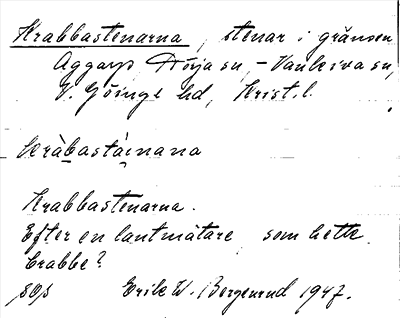 Krabbastenarna, stenar i gränsen
Aggarp Röja sn, - Vankiva sn,
V. Göinge hd, Krist. l.
Kràbastáinana
Krabbastenarna.
Efter en lantmätare, som hette
Crabbe?
Erik W. Bergenrud 1947.